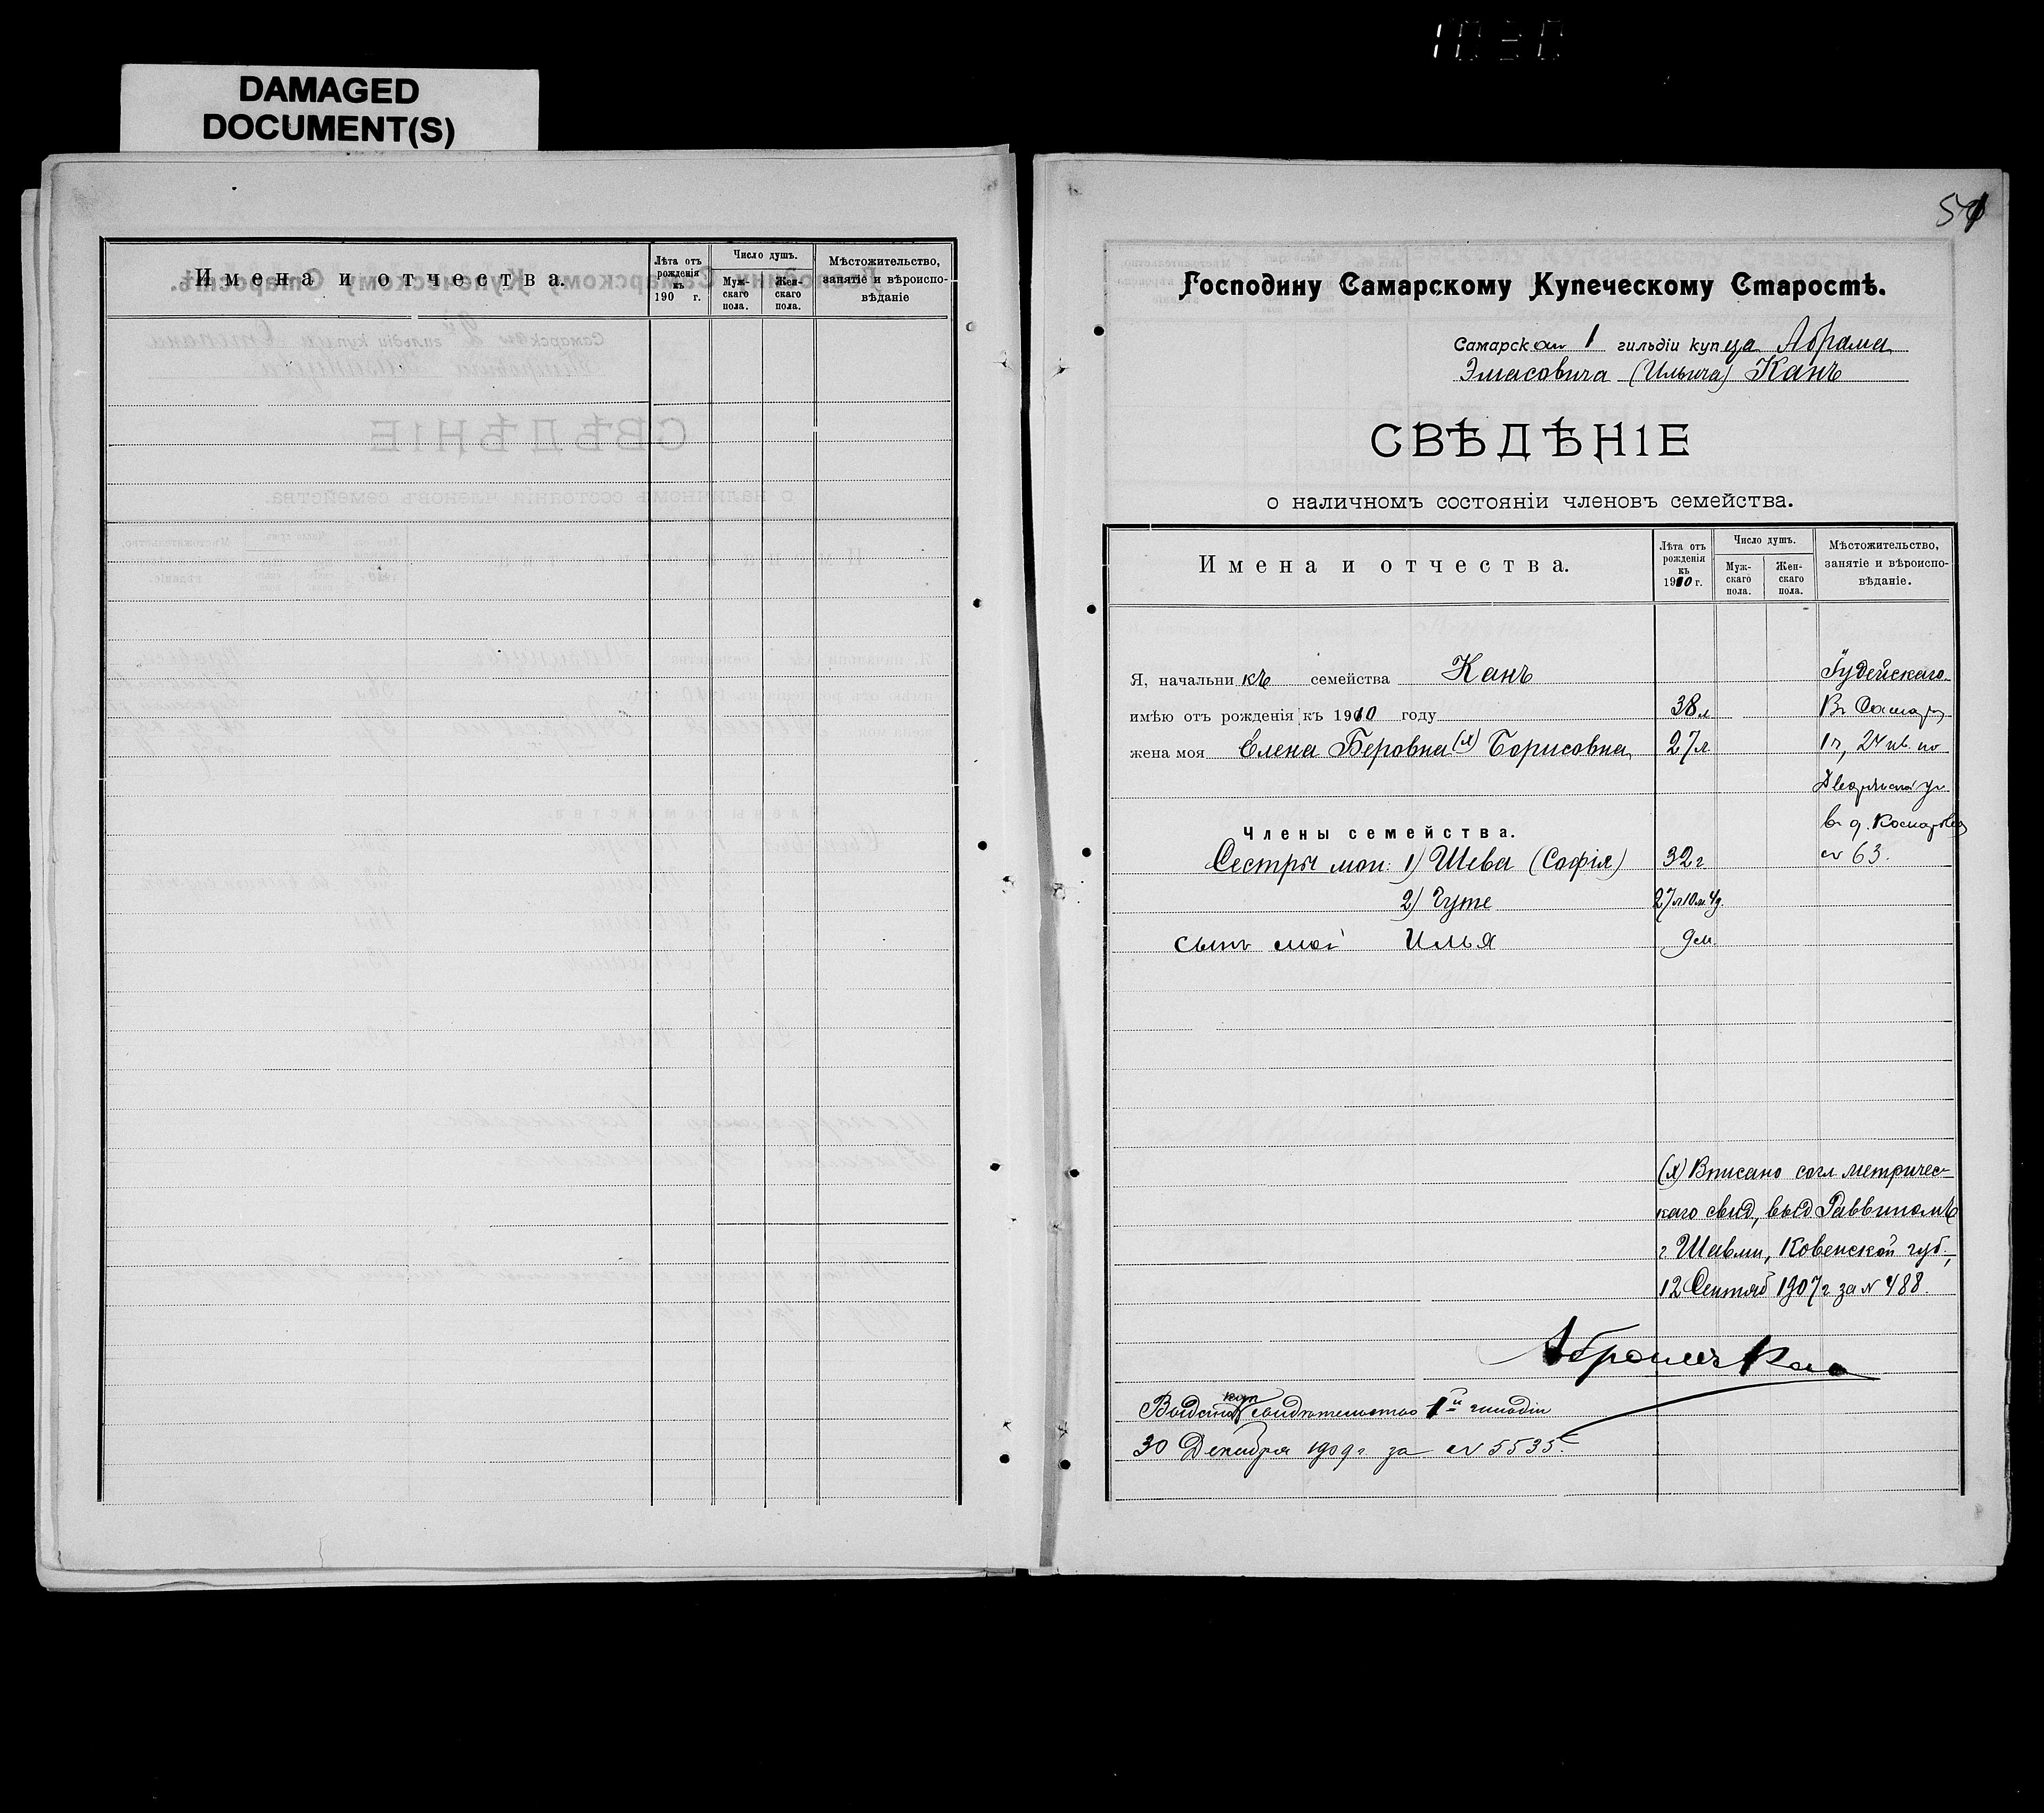 1030
DAMAGED
DOCUMENT(S)
Имена и отчества.
Лѣта отъ
рожденія
къ
190 г.
Число душъ.
Муж-
скаго
пола.
Жен-
скаго
пола.
Мѣстожительство,
занятіе и вѣроиспо-
вѣданіе
Господину Самарскому Купеческому Старостѣ.
Самарскаго 1 гильдіи купца Абрама
(Ильича) Канъ
СВѢДѢНІЕ
о наличномъ состояніи членовъ семейства.
Имена и отчества.
Лѣта отъ
рожденія
къ
1910 г.
Число душъ.
Муж-
скаго
пола.
Жен-
скаго
пола.
Мѣстожительство,
занятіе и вѣроиспо-
вѣданіе.
Я, начальникъ семейства Канъ Іудейскаго
имѣю отъ рожденія къ 1910 году 38 л Въ Самарѣ
жена моя Елена Беровна (х) Борисовна, 27 л. 1 ч, 24 кв. по
Дворянской ул
Члены семейства. въ д.
Сестры мои: 1) Шева (Софія) 32 г № 63.
2) Гуте 27 л 10 м 4 д.
сынъ мой Илья 9 м.
(х) Вписано согл метричес-
каго свид, выд Раввиномъ
г Шавли, Ковенской губ.,
12 Сентяб 1907 г за № 488.
Абрамъ Канъ
Выдано куп свидѣтельство 1й гильдіи
30 Декабря 1909 г. за № 5535.